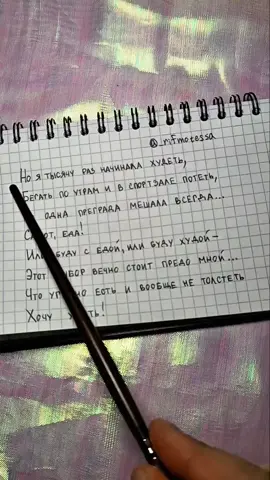 @_rifmotessa
Но я тысячу раз начинала худеть,
Бегать по утрам и в спортзале потеть,
одна преграда мешала всегда...
от, еда!
Или буду с едой, или буду худой –
Этот выбор вечно стоит предо мной...
Что угодно есть и вообще не толстеть
Хочу